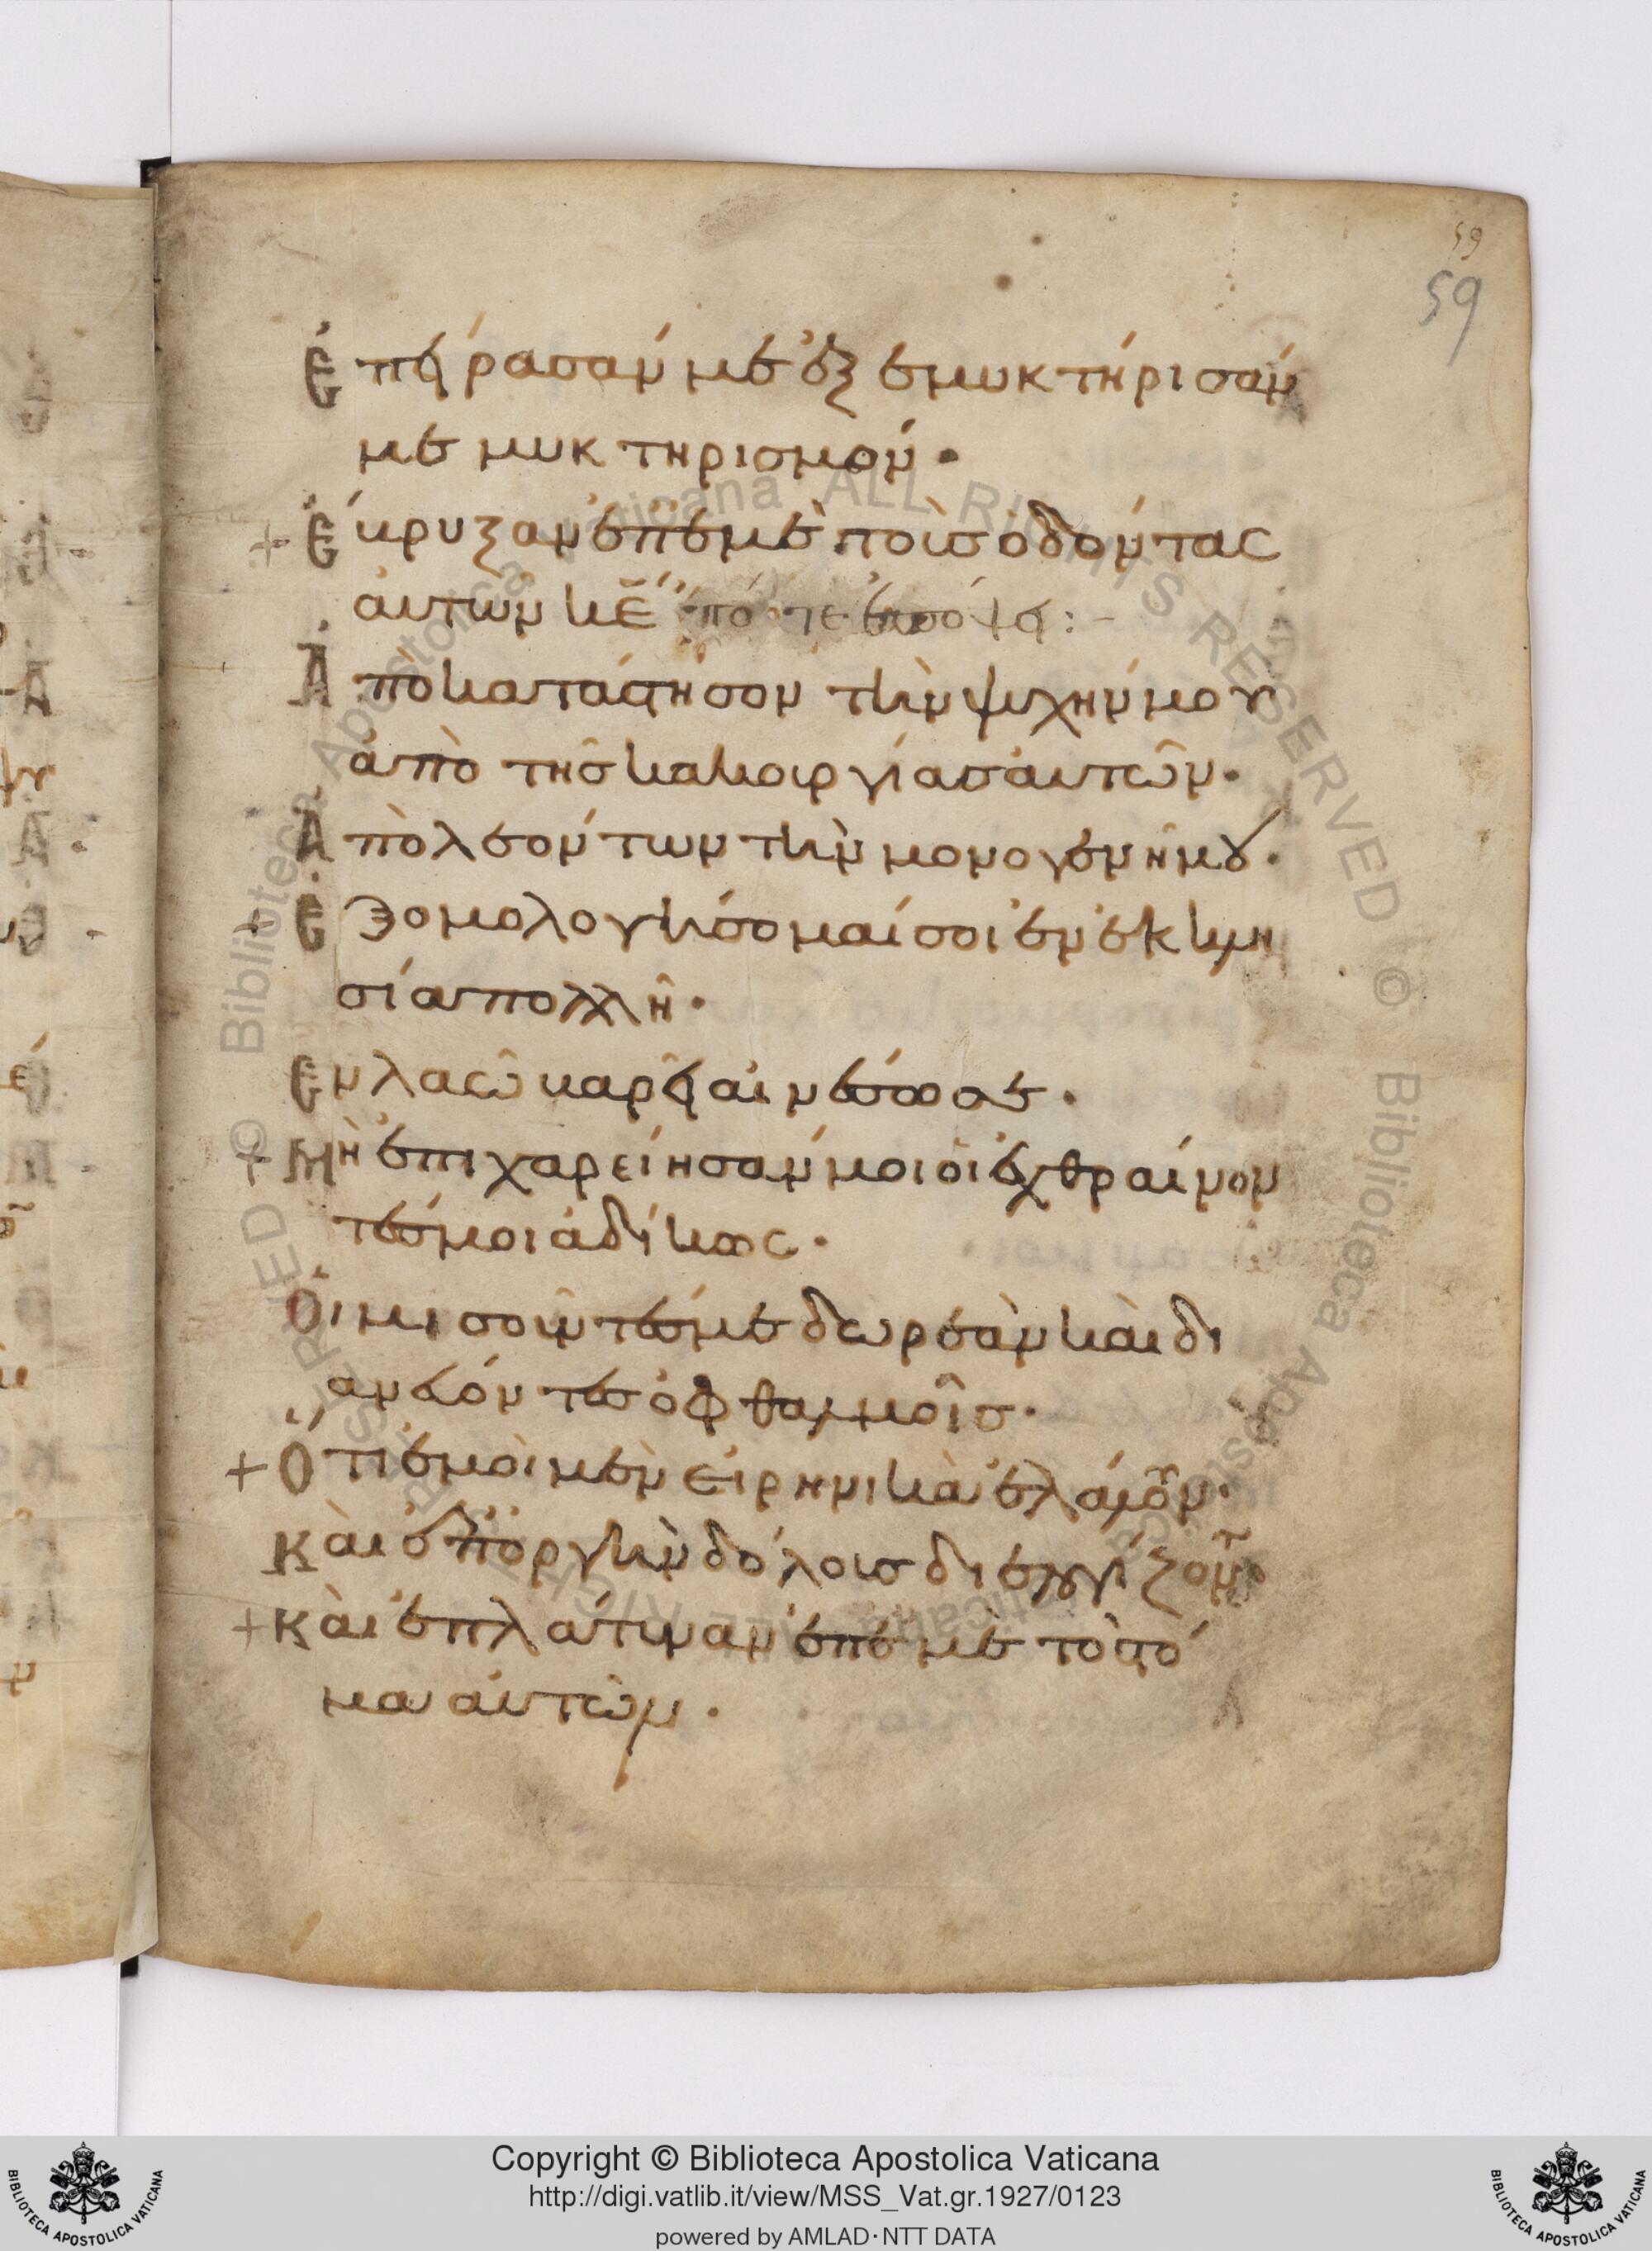 59
59
Ἐπείρασάν με ἐξεμυκτήρισάν
με μυκτηρισμόν·
+ Ἔκρυξαν ἐπ' ἐμὲ τοὺσ ὀδόντας
ἀυτῶν κ̅ε̅ πότε ἐπόψει :-
Ἀποκατάστησον τὴν ψυχήν μου
ἀπὸ τῆσ κακουργίασ ἀυτῶν·
Ἀπὸ λεόντων τὴν μονογενῆ μου·
+ Ἐξομολογήσομαί σοι ἐν ἐκκλη
σία πολλῆ·
Εν λαῶ βαρεῖ αινέσω σε·
+ Μὴ ἐπιχαρείησάν μοι ὁι ἐχθραίνον
τέσ μοι ἀδίκως·
Ὁι μισοῦντέσ με δωρεὰν κὰι δι
ανεύοντεσ ὀφθαλμοῖσ·
+ Ὅτι ἐμοὶ μὲν ἐιρηνικὰ ἐλάλουν·
Κὰι ἐπ' ὀργὴν δόλουσ διελογίζοντο·
+ Κὰι ἐπλάτυναν ἐπ' ἐμὲ τὸ στό
μα ἀυτῶν·
Copyright © Biblioteca Apostolica Vaticana
http://digi.vatlib.it/view/MSS_Vat.gr.1927/0123
powered by AMLAD·NTT DATA
BIBLIOTECA APOSTOLICA VATICANA
BIBLIOTECA APOSTOLICA VATICANA